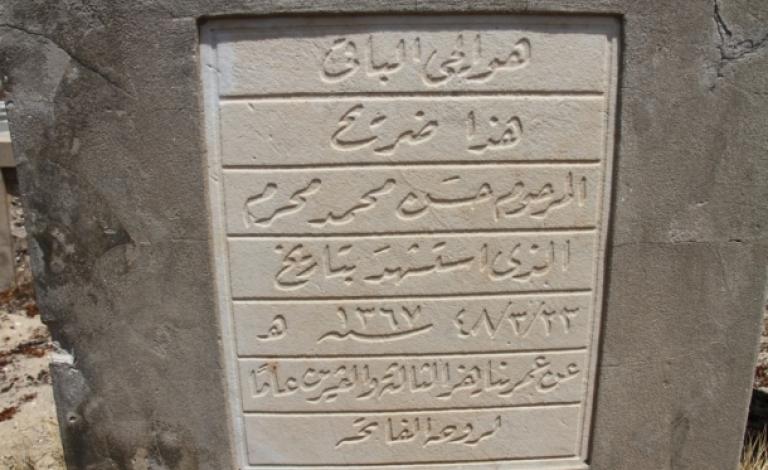 هو الحي الباقي
هذا ضريح
المرحوم حسن محمد محرم
الذي استشهد بتاريخ
٤٨/٣/٢٣ سنه ١٣٦٧ هـ
عن عمر يناهز الثالثة والعشرين عامًا
لروحه الفاتحه